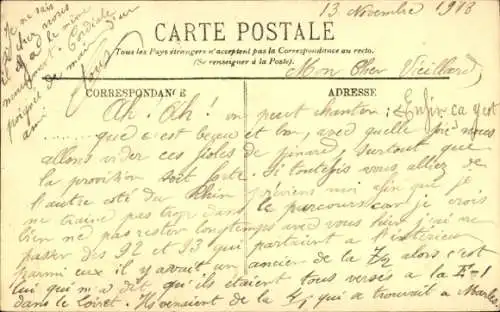 13 Novembre 1918
CARTE POSTALE
Tous les Pays étrangers n'acceptent pas la Correspondance au recto.
(Se renseigner à la Poste)
Mon Cher Vieillard,
CORRESPONDANCE
ADRESSE
Ah! Ah! on peut chanter : Enfin ça y est
que c'est beau et bon, avec quelle nous
allons vider ces de pinard, surtout que
la provision soit forte. Si toutefois vous alliez de
l'autre coté du Rhin préviens moi afin que je
ne traine pas trop dans le parcours car je crois
bien ne pas rester longtemps avec vous hier j'ai
passer des 92 et 93 qui partaient a l'intérieur
parmi eux il y avait un ancien de la alors c'est
lui qui m'a dit qu'ils étaient tous versés a la
dans le Loiret. Ils venaient de la qui se trouvait a
Je ne sais
si chez vous
il y a le même
Cordiale
poignée de main
ami